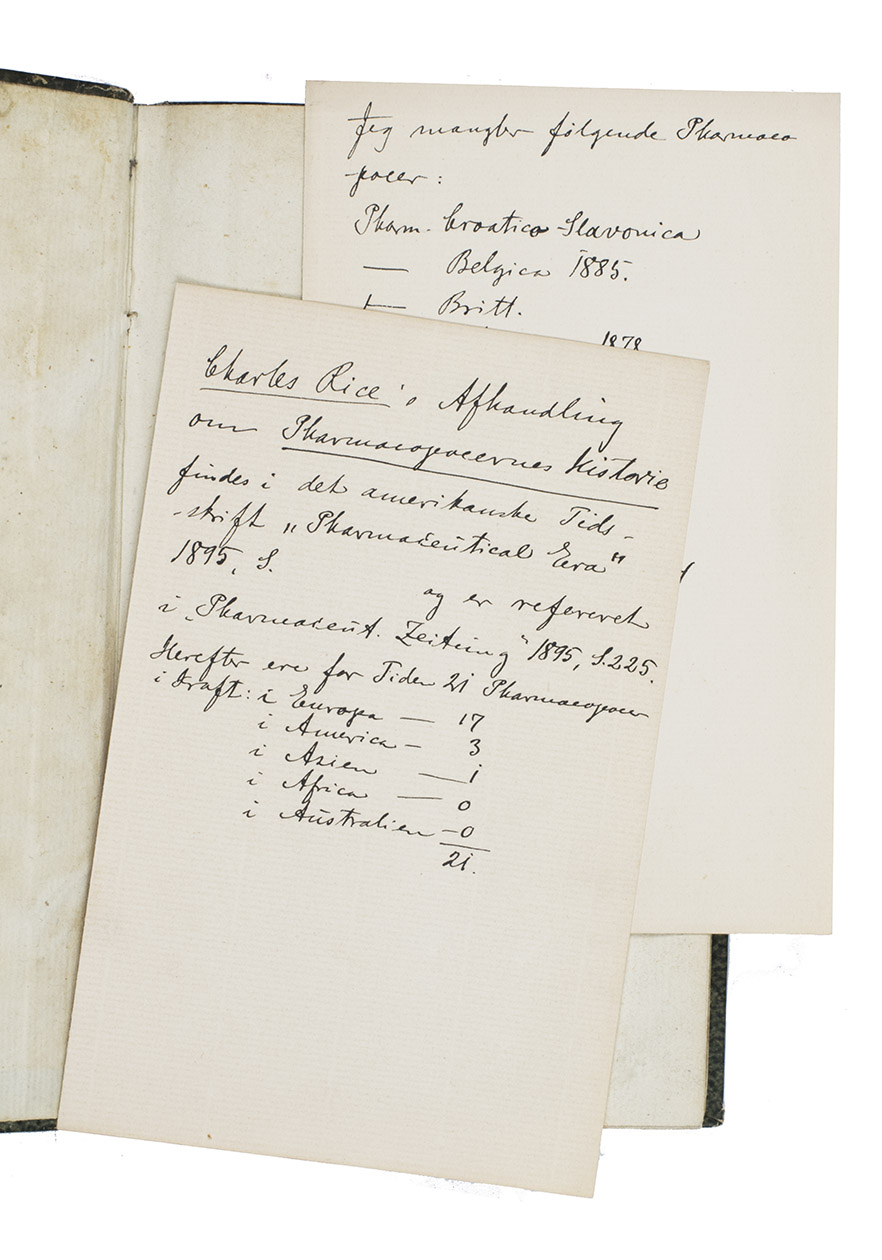 Jeg mangler følgende Pharmaco
poeer:
Pharm. Croatico-Slavonica
— Belgica 1885.
— Britt.
1878
Charles Rice's Afhandling
om Pharmacopoeernes Historie
findes i det amerikanske Tids-
skrift „Pharmaceutical Era"
1895, S.
og er refereret
i „Pharmaceut. Zeitung" 1895, S. 225.
Herefter ere for Tiden 21 Pharmacopoeer
i Kraft: i Europa — 17
i America — 3
i Asien — 1
i Africa — 0
i Australien — 0
21.